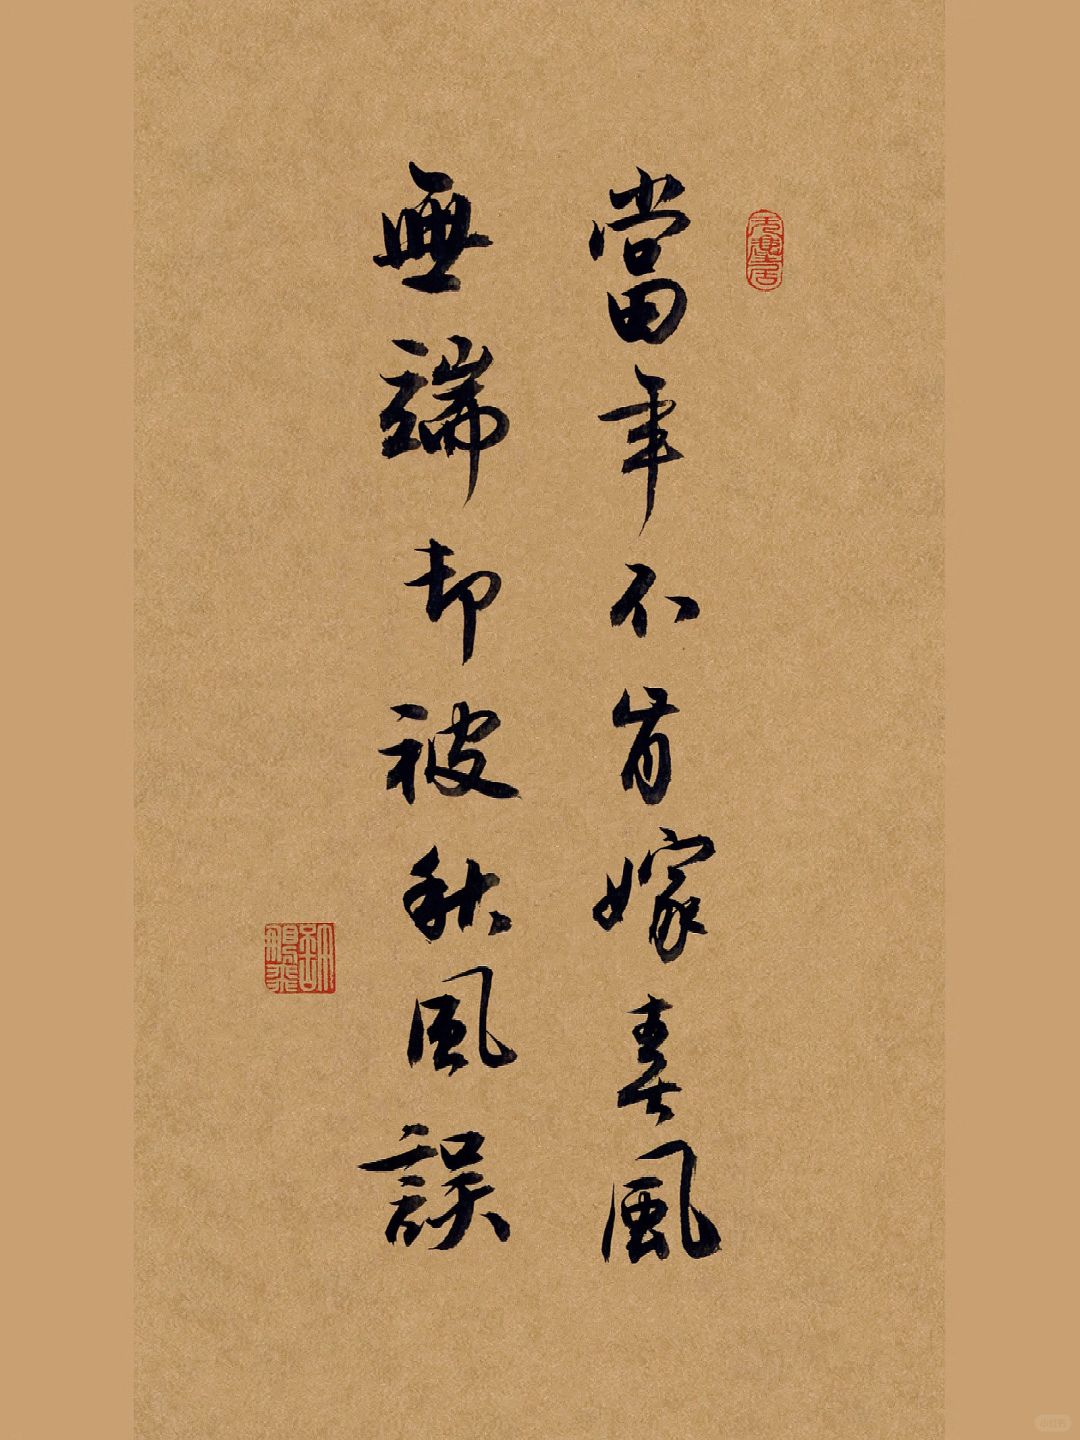 當年不肯嫁春風
無端却被秋風誤